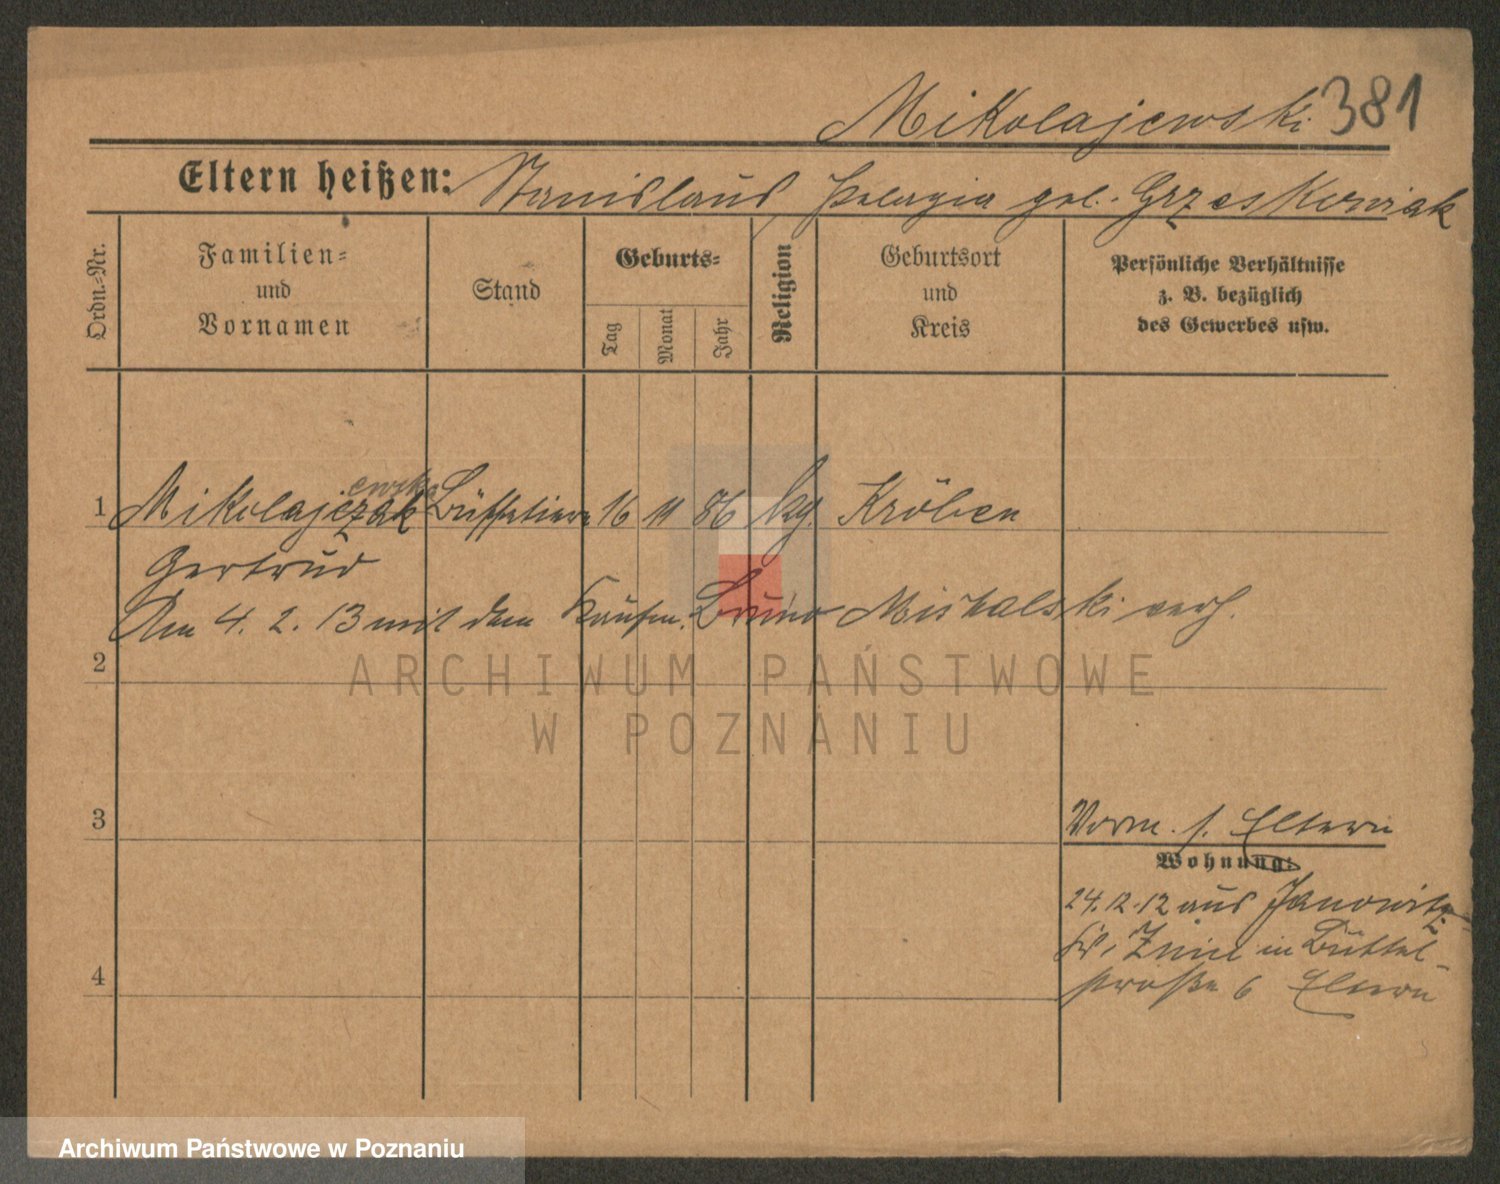 Mikolajewski 381
Eltern heißen: Stanislaus Pelagia geb. Grzeskowiak
Ordn.-Nr.
Familien-
und
Vornamen
Stand
Geburts-
Tag
Monat
Jahr
Religion
Geburtsort
und
Kreis
Persönliche Verhältnisse
z. B. bezüglich
des Gewerbes usw.
ewska
1 Mikolajczak Büffetiere 16 11 86 kg. Kröben
Gertrud
Am 4. 2. 13 mit dem Kaufm. Bruno verh.
2
3
Vorm. s. Eltern
Wohnung:
24.12.12 aus Janowitz
Kr. Znin in Büttel-
straße 6 Eltern
4
ARCHIWUM PAŃSTWOWE
W POZNANIU
Archiwum Państwowe w Poznaniu